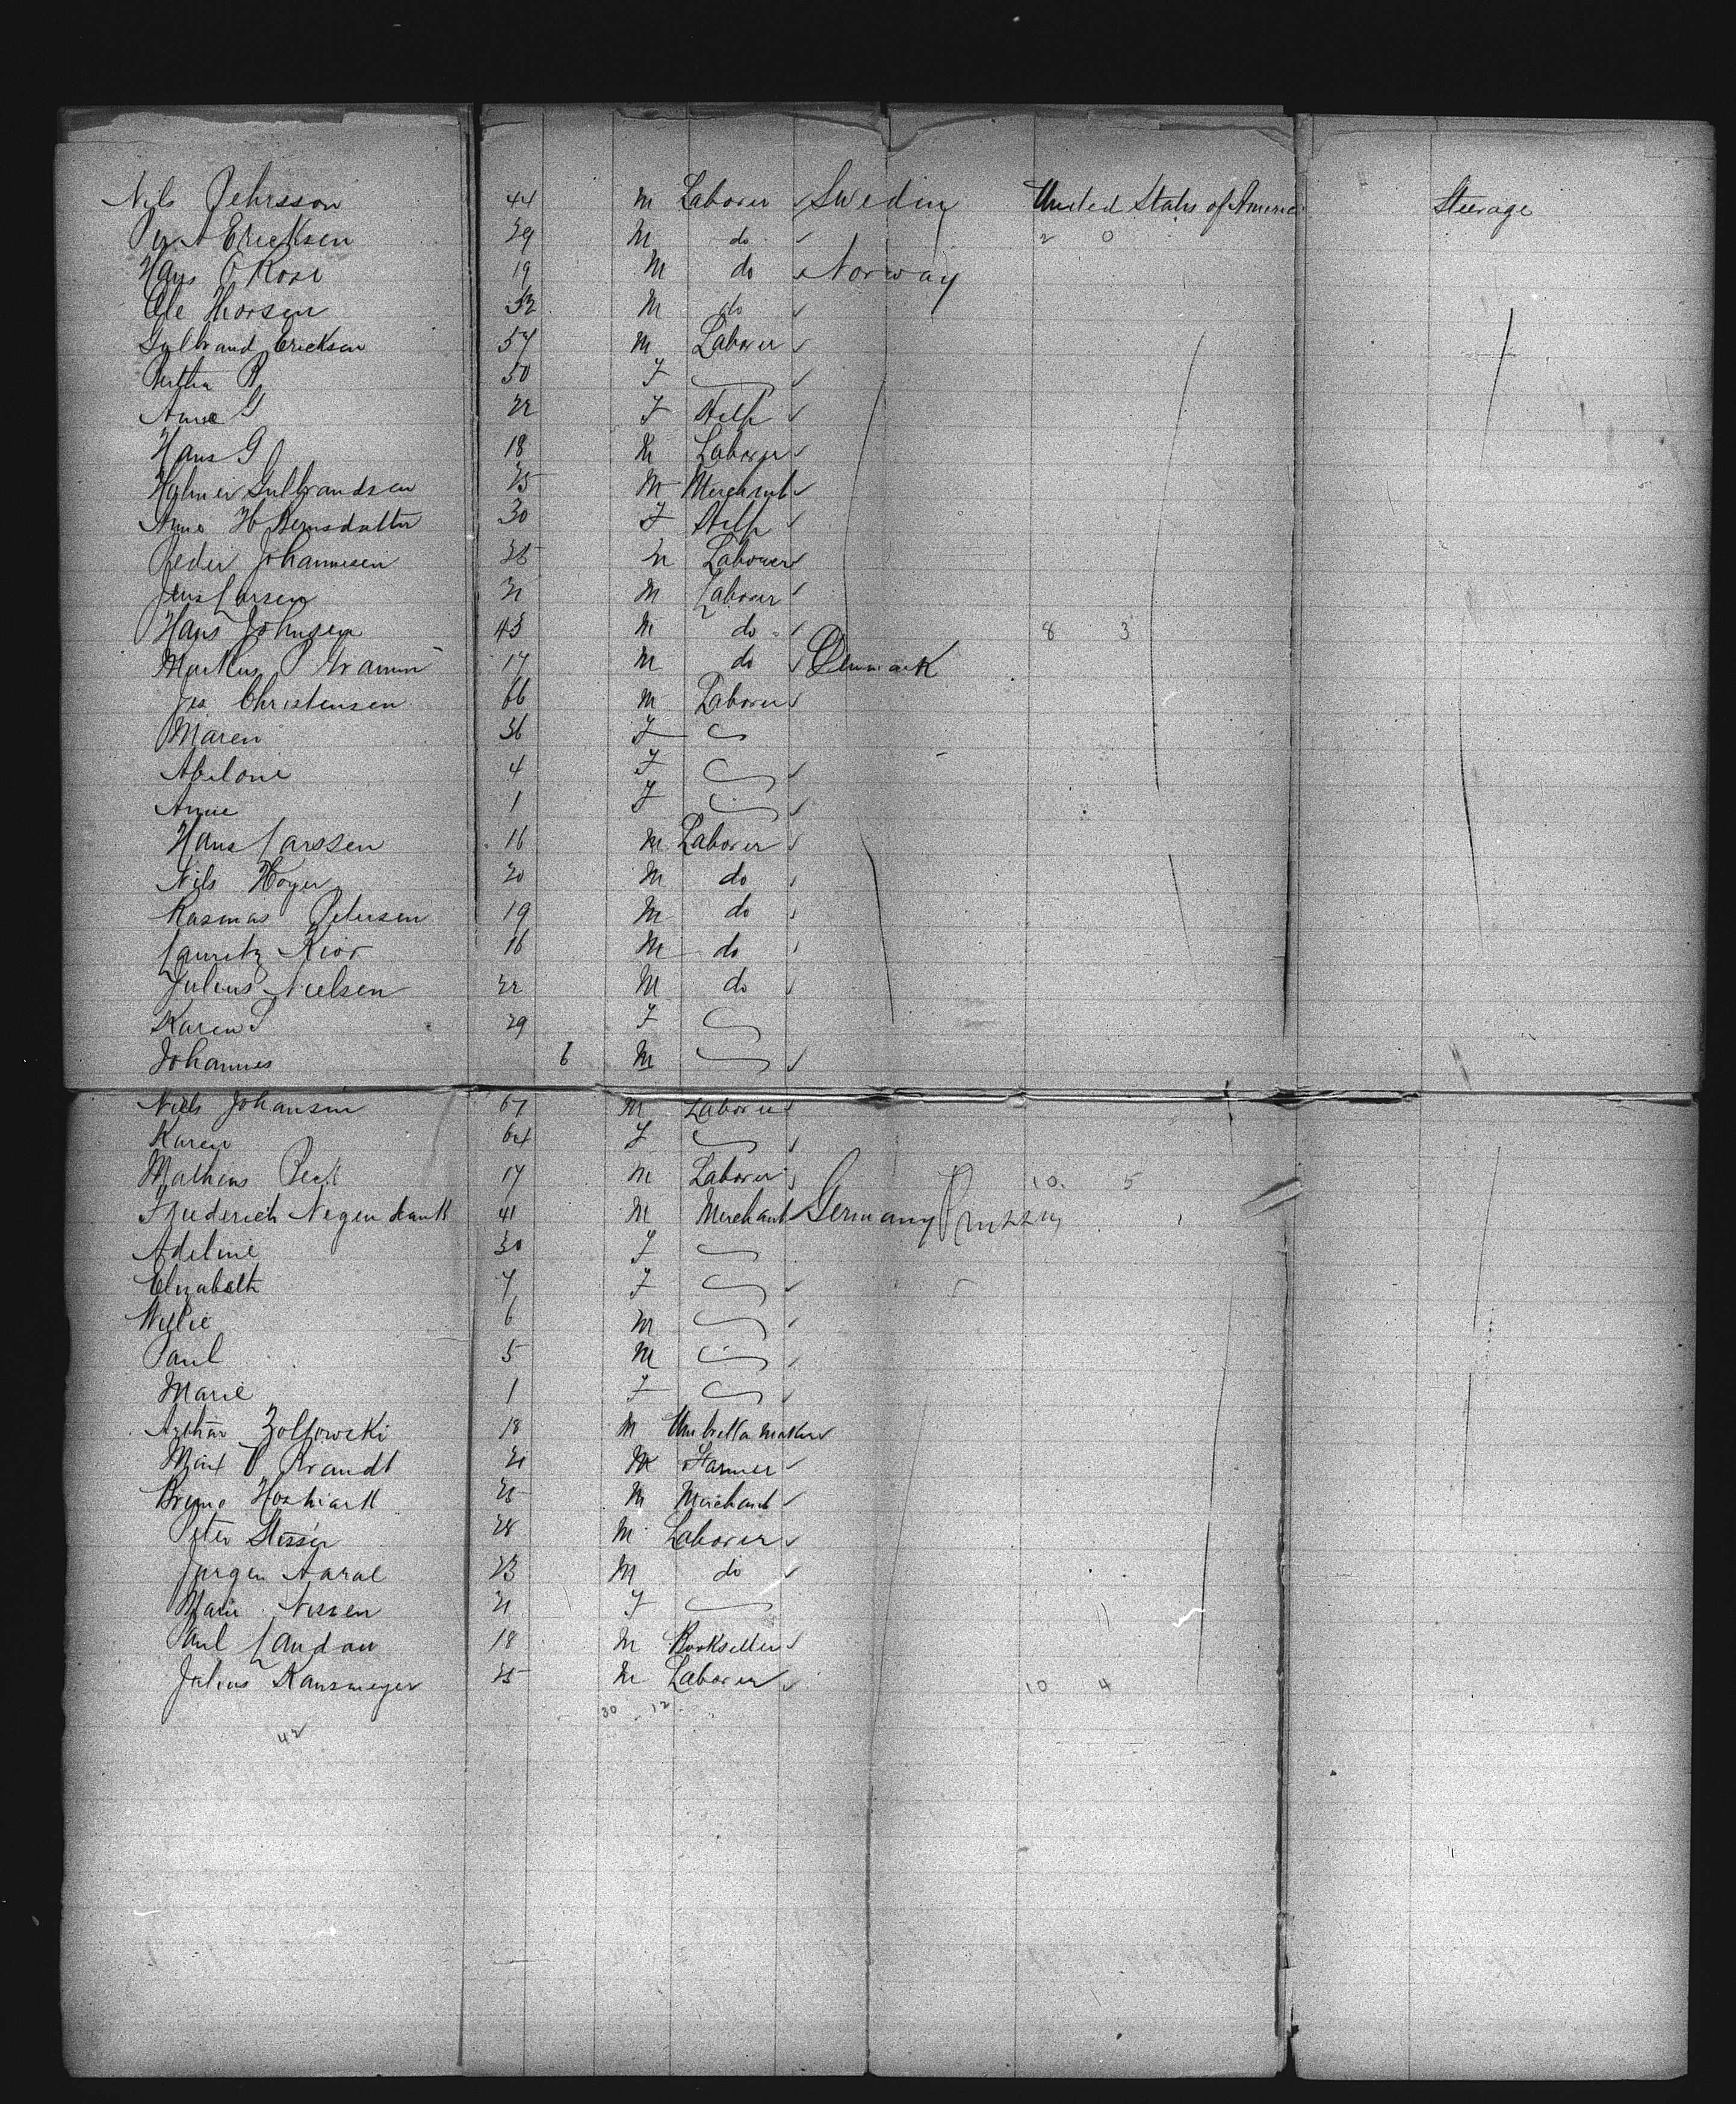 Nils Pehrsson 44 M Laborer Sweden United States of America Steerage
Per A Ericksen 29 M do 2 0
Hans O Rose 19 M do Norway
Ole Thorsen 52 M do
Gulbrand Ericksen 54 M Laborer
Bertha B 50 F
Anne G 22 F Help
Hans G 18 M Laborer
Gulbrandsen 25 M Merchant
Anne H 30 F Help
Peder Johannesen 28 M Laborer
Jens Larsen 21 M Laborer
Hans Johnsen 43 M do 8 3
Markus P 17 M do Denmark
Jes Christensen 66 M Laborer
Maren 36 F
Abelone 4 F
Anne 1 F
Hans Larssen 16 M Laborer
Nils Hoyer 20 M do
Rasmus Petersen 19 M do
Lauritz Kior 16 M do
Julius Nielsen 22 M do
Karen S 29 F
Johannes 6 M
Niels Johansen 67 M Laborer
Karen 64 F
Mathias 17 M Laborer 10. 5
Friederich Negendank 41 M Merchant Germany Prussia
Adeline 30 F
Elizabeth 7 F
Willie 6 M
Paul 5 M
Marie 1 F
Arthur Zolkowski 18 M Umbrella maker
Max P Brandt 21 M Farmer
Bruno 25 M Merchant
Peter 28 M Laborer
Jurgen 23 M do
Marie Nissen 21 F
Paul Landau 18 M Bookseller
Julius 25 M Laborer 10 4
30 12
42